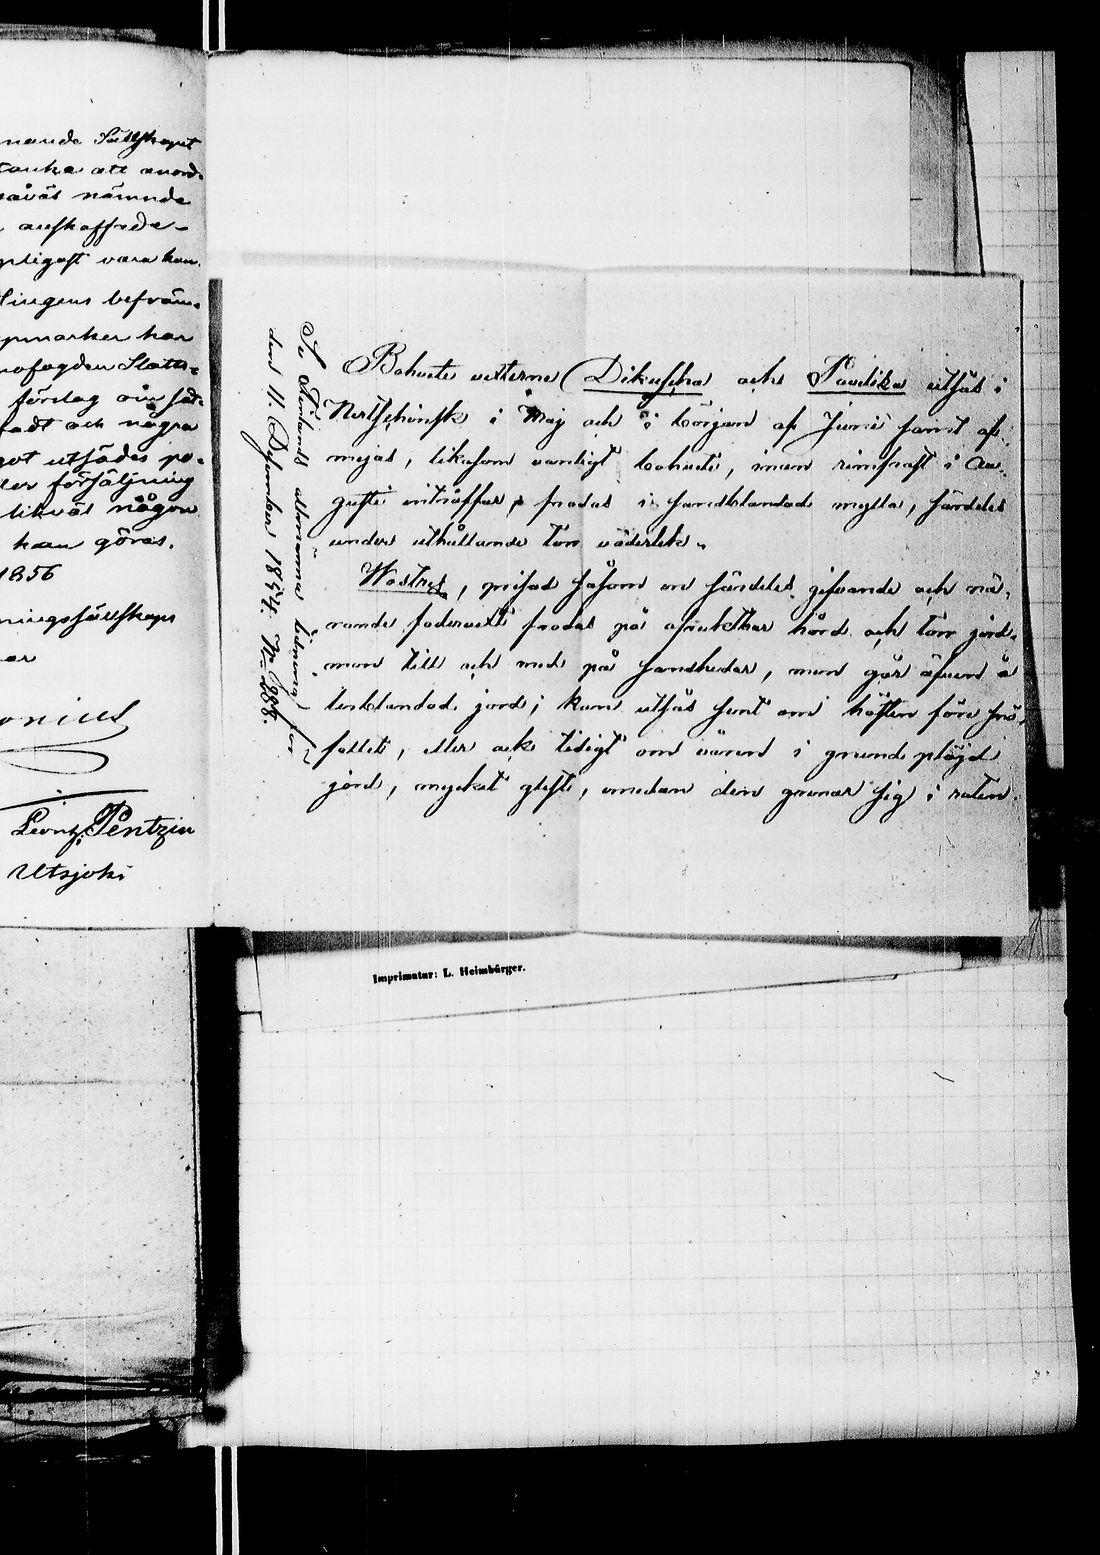 nande Sällskapet
tanka att anord-
såväl nämnde
anskaffade
ligast vara kan.
lingens befräm-
pmarker har
nofogden Slatts-
förslag
och några
got utsådes på
ler försäljning
likväl någon
kan göras.
1856
ningssällskaps
ar
onius
Leonh. Pentzin
Utsjoki
Se Finlands allmänna tidning för
den 11 December 1854 No 288.
Bohvete arterne (Dikuscha och Pavlika utsås i
Nertschinsk i Maj och i början af Junii samt af-
mejas, likasom vanligt bohvete, innan rimfrost i Au-
gusti inträffar, frodas i sandblandad mylla, särdeles
under uthållande torr väderlek.
Wostrez, prisad såsom en särdeles gifvande och nä-
rande foderväxt frodas på ofruktbar hård och torr jord-
mon till och med på sandhedar, men går äfven å
lerblandad jord; kan utsås sent om hösten före snö-
fallet, eller ock tidigt om våren i grundt plöjd
jord, mycket glest, emedan den grenar sig i roten.
Imprimatur: L. Heimbürger.